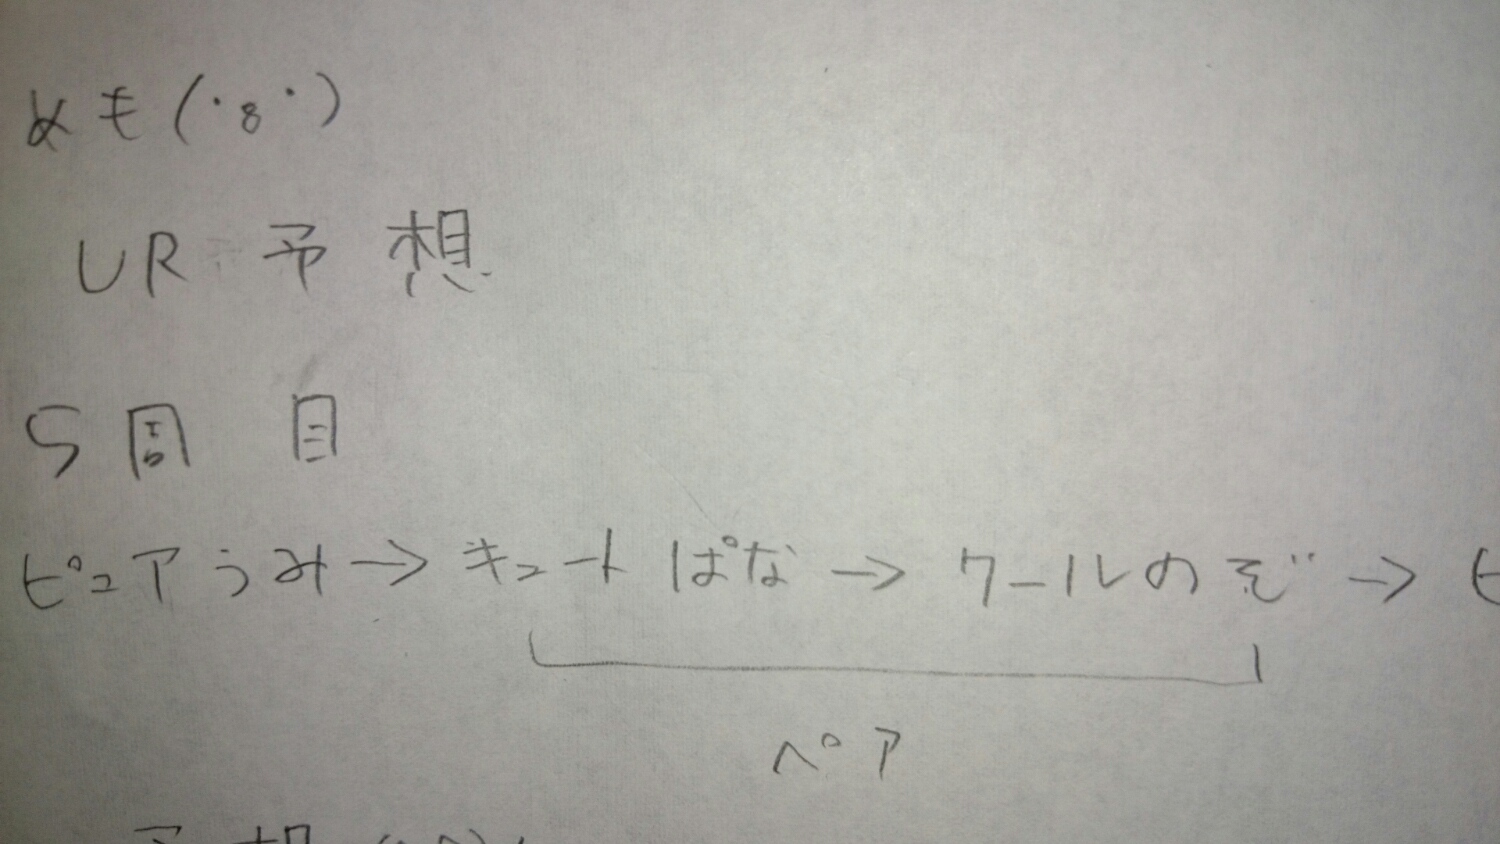 めも(・8・)
UR 予想
5周目
ピュアうみ→キュートぱな→クールのぞ→
ペア
予想